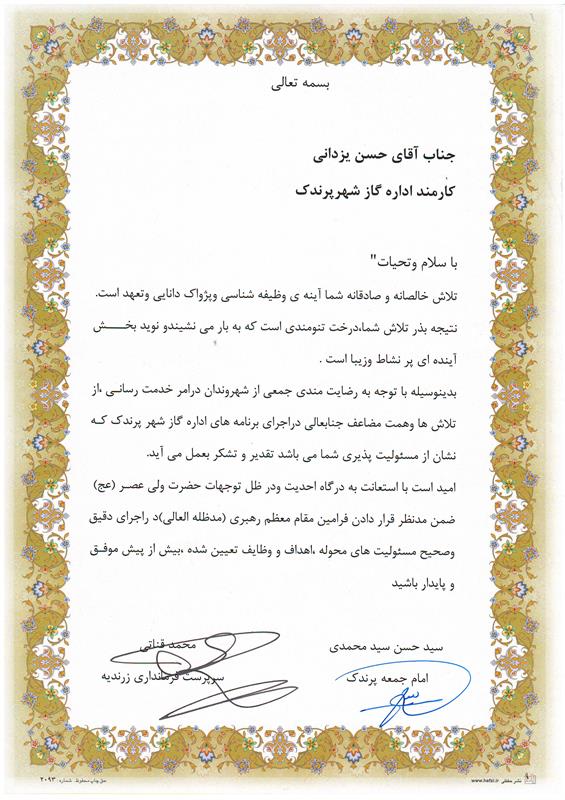 بسمه تعالی
جناب آقای حسن یزدانی
کارمند اداره گاز شهرپرندک
با سلام وتحیات"
تلاش خالصانه و صادقانه شما آینه ی وظیفه شناسی وپژواک دانایی وتعهد است.
نتیجه بذر تلاش شما،درخت تنومندی است که به بار می نشیندو نوید بخش
آینده ای پر نشاط وزیبا است .
بدینوسیله با توجه به رضایت مندی جمعی از شهروندان درامر خدمت رسانی ،از
تلاش ها وهمت مضاعف جنابعالی دراجرای برنامه های اداره گاز شهر پرندک که
نشان از مسئولیت پذیری شما می باشد تقدیر و تشکر بعمل می آید.
امید است با استعانت به درگاه احدیت ودر ظل توجهات حضرت ولی عصر (عج)
ضمن مدنظر قرار دادن فرامین مقام معظم رهبری (مدظله العالی)د راجرای دقیق
وصحیح مسئولیت های محوله ،اهداف و وظایف تعیین شده ،بیش از پیش موفق
و پایدار باشید
سید حسن سید محمدی
امام جمعه پرندک
محمد قنائی
سرپرست فرمانداری زرندیه
نشر حفظی www.hafzi.ir
حق چاپ محفوظ. شماره: ۲۰۹۳